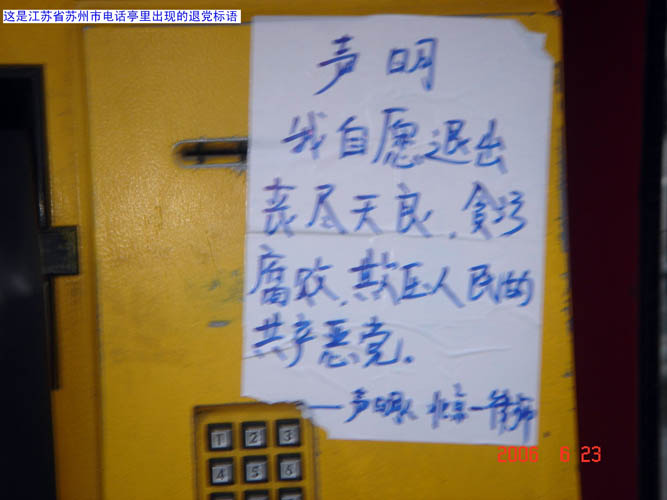 这是江苏省苏州市电话亭里出现的退党标语
声明
我自愿退出
丧尽天良、贪污
腐败、欺压人民的
共产恶党。
——声明人 北京一律师
1 2 3
4 5 6
2006 6 23